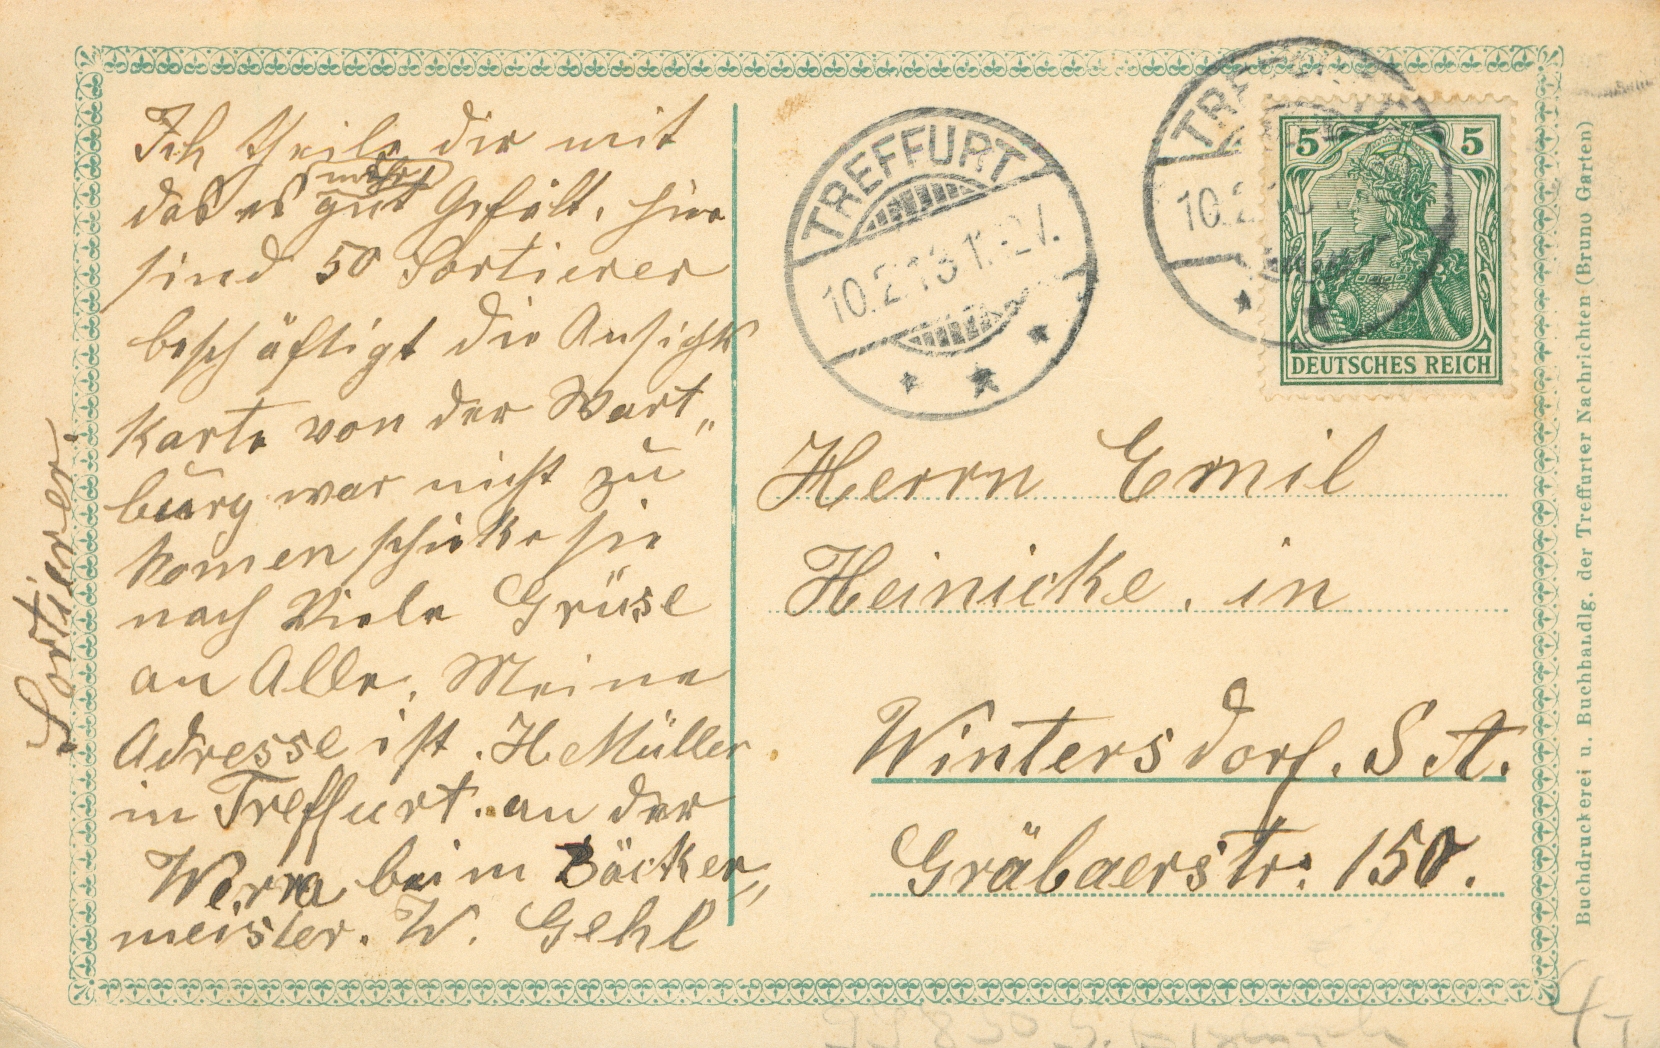 Ich theile dir mit
mehr
das es gut Gefält. hier
sind 50 Sortierer
beschäftigt die Ansicht
Karte von der Wart„
burg war nicht zu
komen schicke sie
nach Viele Grüse
an Alle. Meine
Adresse ist. H. Müller
in Treffurt. an der
Werra beim Bäcker„
meister. W. Gehl
Sortierer.
TREFFURT
10.2.13
TR
10.2
5 5
DEUTSCHES REICH
Herrn Emil
Heinicke. in
Wintersdorf. S. A.
Gräbaerstr. 150.
Buchdruckerei u. Buchhandlg. der Treffurter Nachrichten (Bruno Garten)